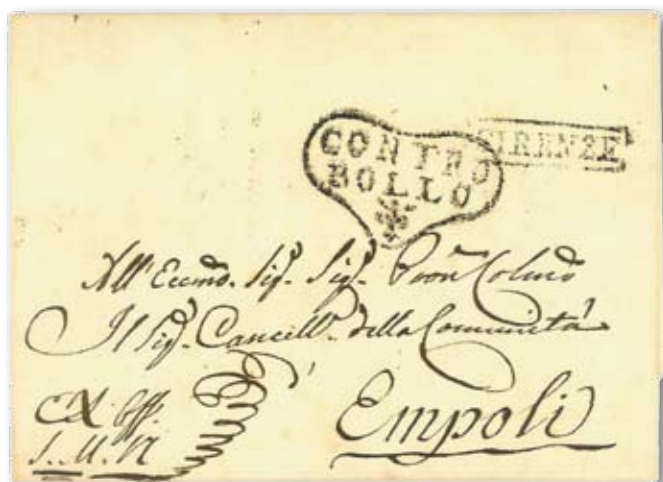 CONTRO
BOLLO
FIRENZE
All' Eccmo. Sig. Sig. Pron Colmo
Il Sig. Cancell. della Comunità
Empoli